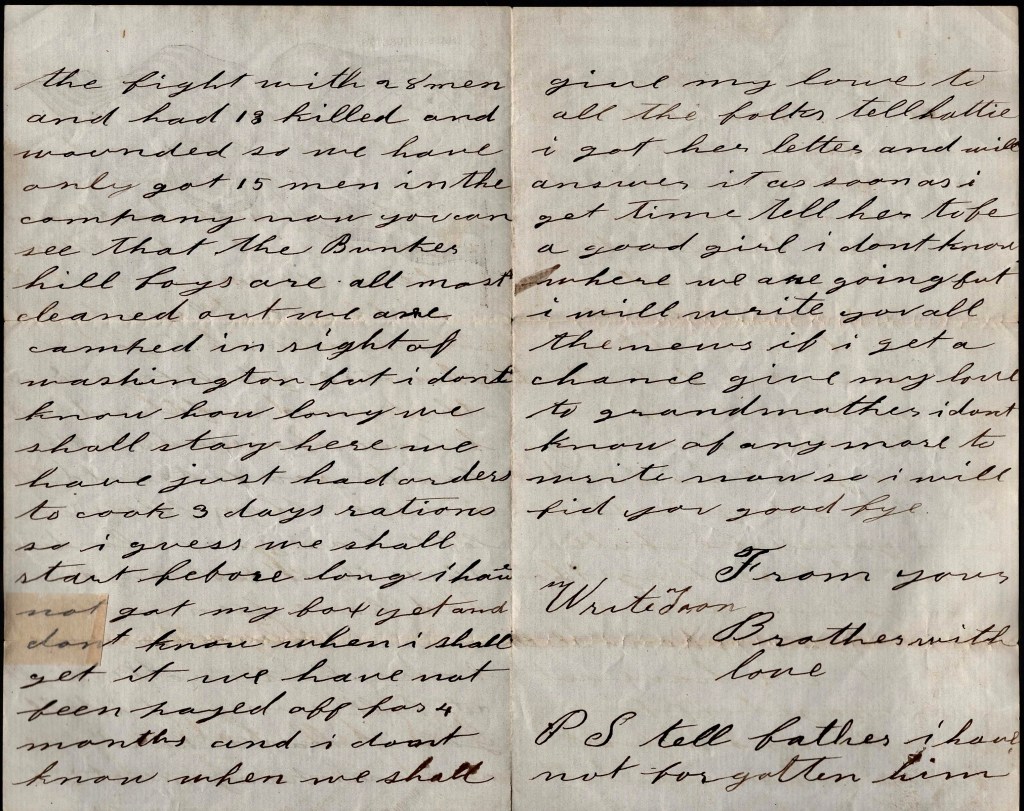 the fight with 28 men
and had 13 killed and
wounded so we have
only got 15 men in the
company now you can
see that the Bunker
hill boys are all most
cleaned out we are
camked in sight of
washington but i dont
know how long we
shall stay here we
have just had orders
to cook 3 days rations
so i guess we shall
start before long i have
not got my box yet and
dont know when i shall
get it we have not
been payed off for 4
months and i dont
know when we shall
give my love to
all the folks tell hattie
i got her letter and will
answer it as soon as i
get time tell her to be
a good girl i dont know
where we are going but
i will write you all
the news if i get a
chance give my love
to grandmother i dont
know of any more to
write now so i will
bid you good bye
From your
Write Soon
Brother with
love
P S tell father i have
not forgotten him